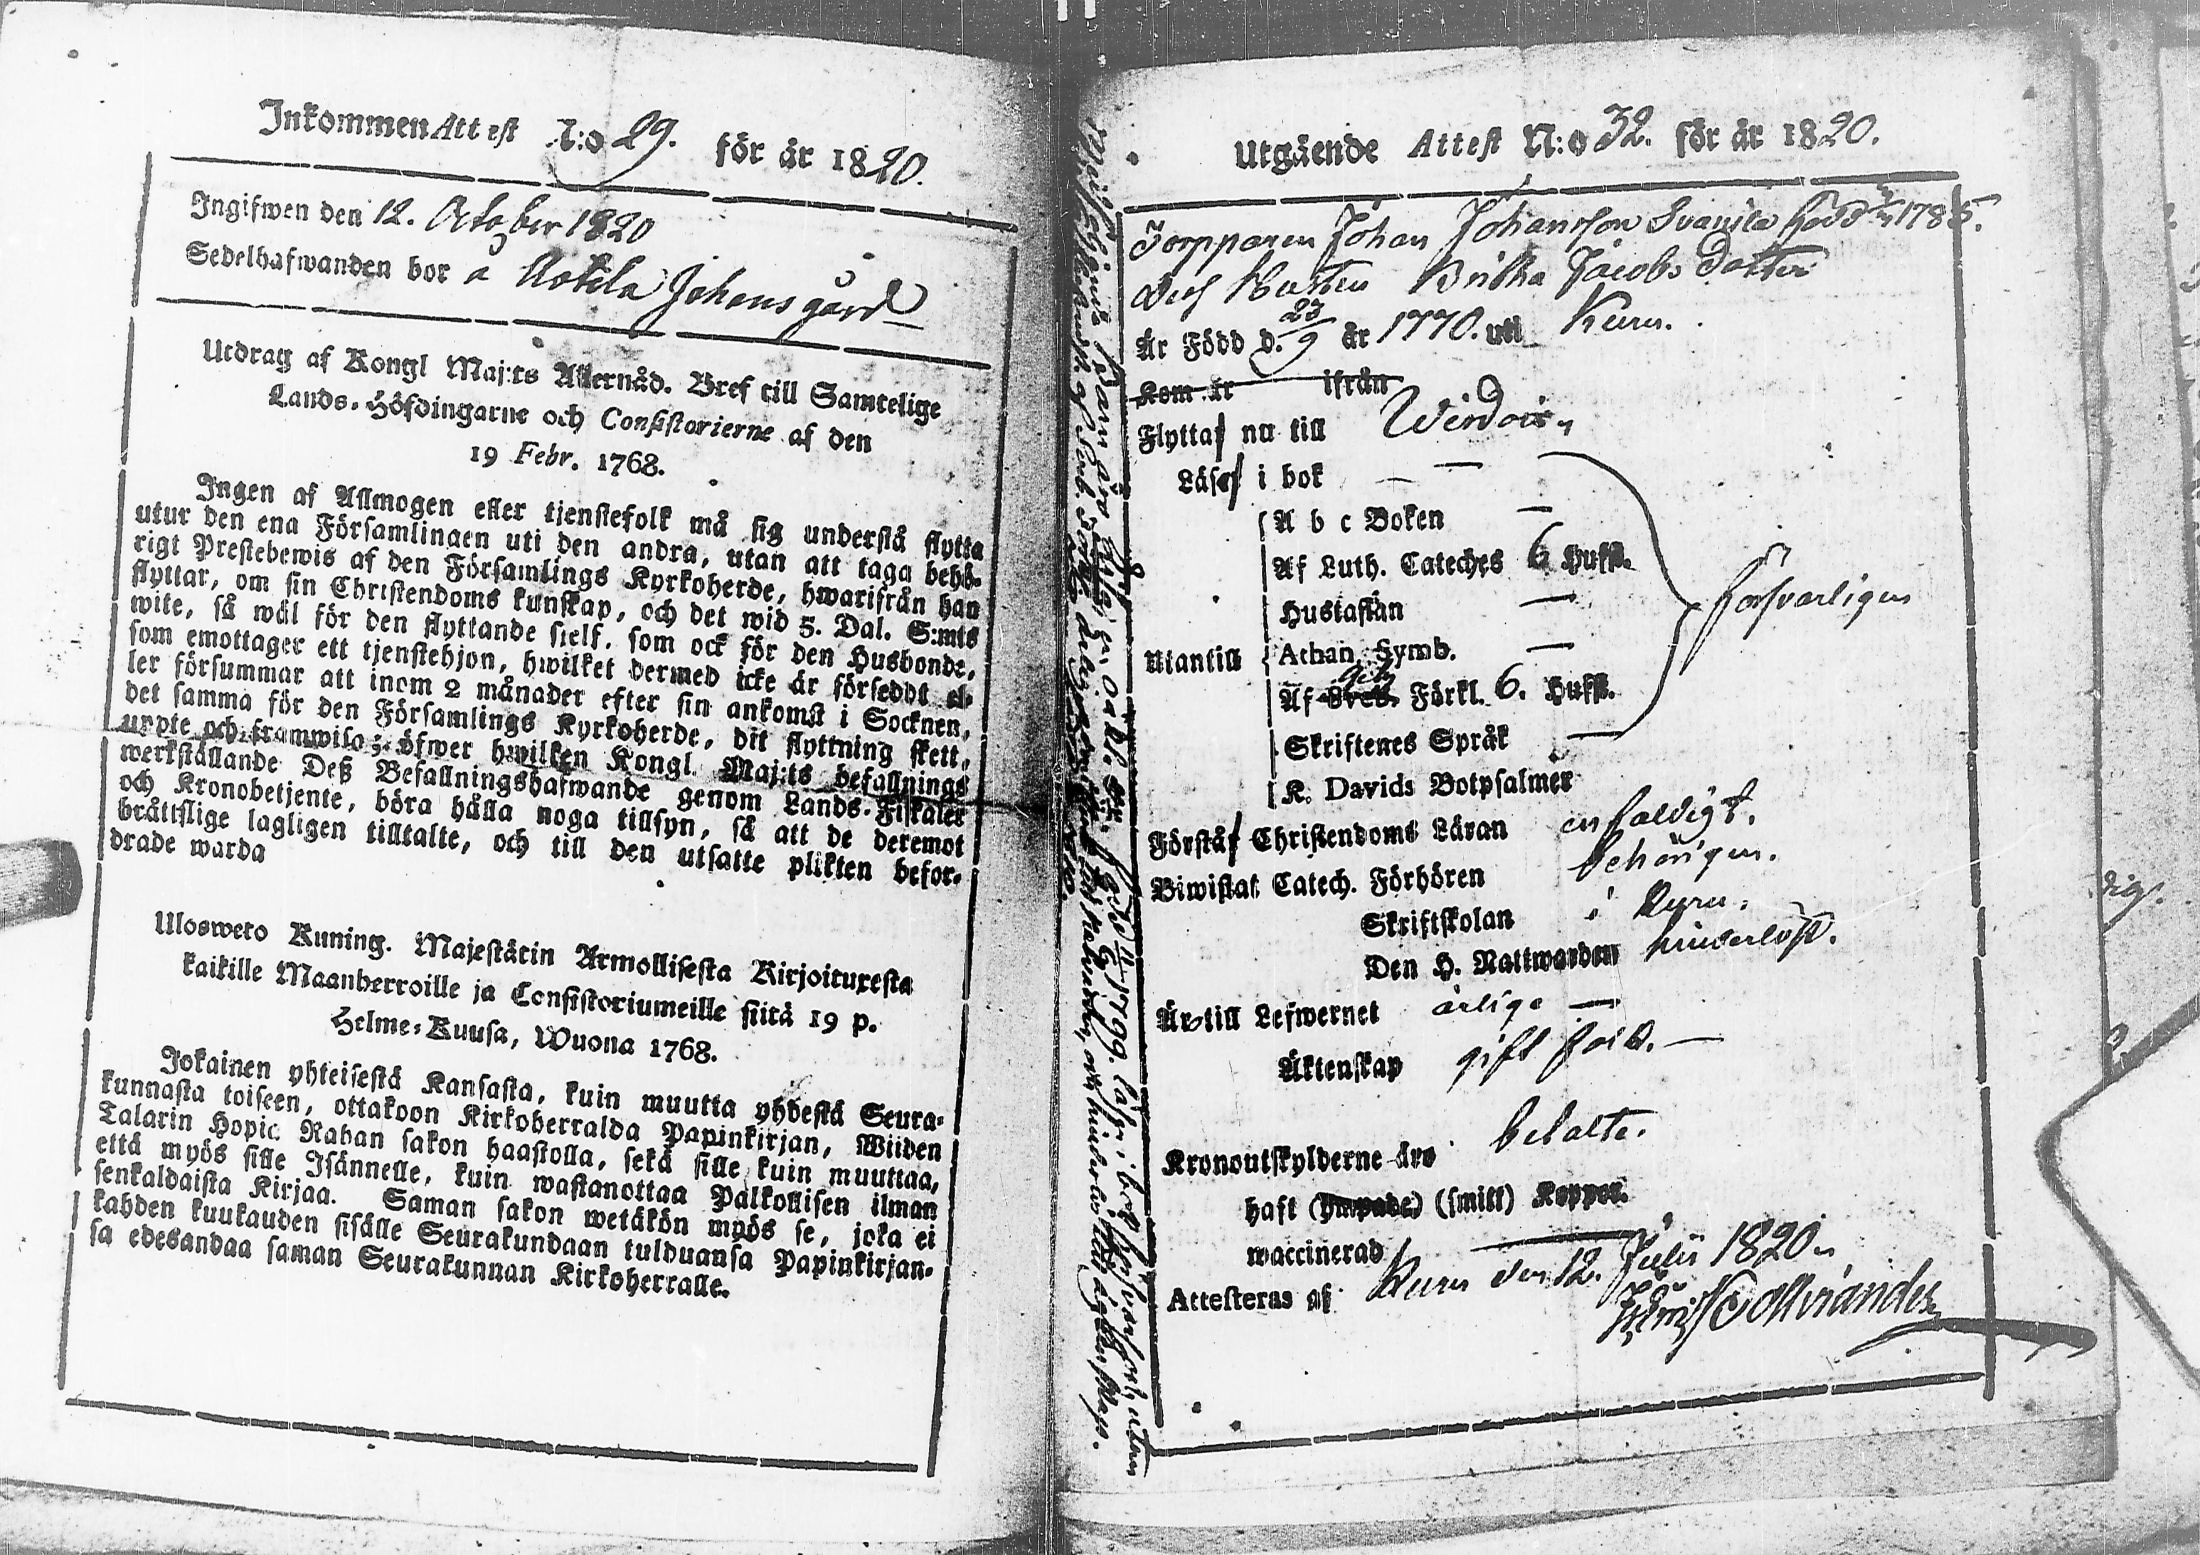 Inkommen Attest N:o 29. för år 1820.
Ingifwen den 12. October 1820
Sedelhafwanden bor å Kotila Johansgård
Utdrag af Kongl Maj:ts Allernåd. Bref till Samtelige
Lands-Höfdingarne och Consistorierne af den
19 Febr. 1768.
Ingen af Allmogen eller tjenstefolk må sig understå flytta
utur den ena Församlingen uti den andra, utan att taga behö-
rigt Prestebewis af den Församlings Kyrkoherde, hwarifrån han
flyttar, om sin Christendoms kunskap, och det wid 5. Dal. S:mts
wite, så wäl för den flyttande sielf, som ock för den Husbonde,
som emottager ett tjenstehjon, hwilket dermed icke är förseddt el-
ler försummar att inom 2 månader efter sin ankomst i Socknen,
det samma för den Församlings Kyrkoherde, dit flyttning skett,
uppte och framwisa; öfwer hwilken Kongl. Maj:ts befallnings
werkställande Deß Befallningshafwande genom Lands-Fiskaler
och Kronobetjente, böra hålla noga tillsyn, så att de deremot
bråttslige lagligen tilltalte, och till den utsatte plikten befor-
drade warda
Ulosweto Kuning. Majestätin Armollisesta Kirjoituxesta
kaikille Maanherroille ja Consistoriumeille siitä 19 p.
Helme-Kuusa, Wuona 1768.
Jokainen yhteisestä Kansasta, kuin muutta yhdestä Seura-
kunnasta toiseen, ottakoon Kirkoherralda Papinkirjan, Wiiden
Talarin Hopia Rahan sakon haastolla, sekä sille kuin muuttaa,
että myös sille Isännelle, kuin wastanottaa Palkollisen ilman
senkaldaista Kirjaa. Saman sakon wetäkön myös se, joka ei
kahden kuukauden sisälle Seurakundaan tulduansa Papinkirjan-
sa edesandaa saman Seurakunnan Kirkoherralle.
Utgående Attest N:o 32. för år 1820.
Torpparen Johan Johansson Svanila född 1785.
Dess Hustru Britha Jacobs Dotter
Är Född d. 23/9 år 1770. uti Kuru.
Kom år ifrån
Flyttaf nu till Wirdois
Läsa i bok —
A b c Boken —
Af Luth. Cateches 6 Hufst.
Hustaflan —
Utantill Athan. Symb. — försvarligen
Af Sveb. Förkl. 6. Hufst.
Skriftenes Språk —
K. Davids Botpsalmer
Förstå Christendoms Läran enfaldigt.
Biwistat Catech. Förhören behörigen.
Skriftskolan i Kuru.
Den H. Nattwarden hinderlöst.
Äro till Lefwernet ärlige —
Äktenskap gift folk. —
Kronoutskylderne äro betalte.
haft (Ympade) (smitt) Koppor.
waccinerad
Attesteras af Kuru den 12. Julii 1820